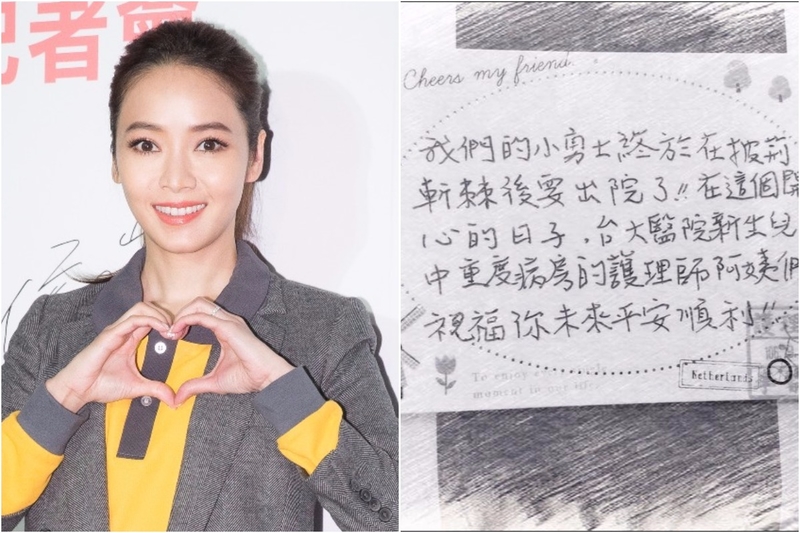 記者會
Cheers my friend.
我們的小勇士終於在披荊
斬棘後要出院了!!在這個開
心的日子,台大醫院新生兒
中重度病房的護理師阿姨們
祝福你未來平安順利!!
To enjoy every
moment in our life.
Netherlands